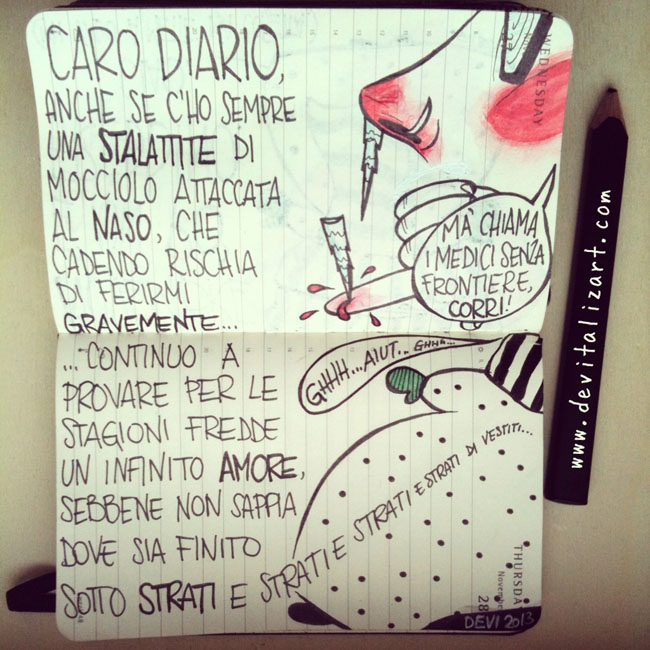 CARO DIARIO,
ANCHE SE C'HO SEMPRE
UNA STALATTITE DI
MOCCIOLO ATTACCATA
AL NASO, CHE
CADENDO RISCHIA
DI FERIRMI
GRAVEMENTE...
27
WEDNESDAY
MA' CHIAMA
I MEDICI SENZA
FRONTIERE,
CORRI!
...CONTINUO A
PROVARE PER LE
STAGIONI FREDDE
UN INFINITO AMORE,
SEBBENE NON SAPPIA
DOVE SIA FINITO
SOTTO STRATI E STRATI E STRATI E STRATI DI VESTITI...
GHHH...AIUT...GHHH...
THURSDA
November
28
DEVI 2013
www.devitalizart.com